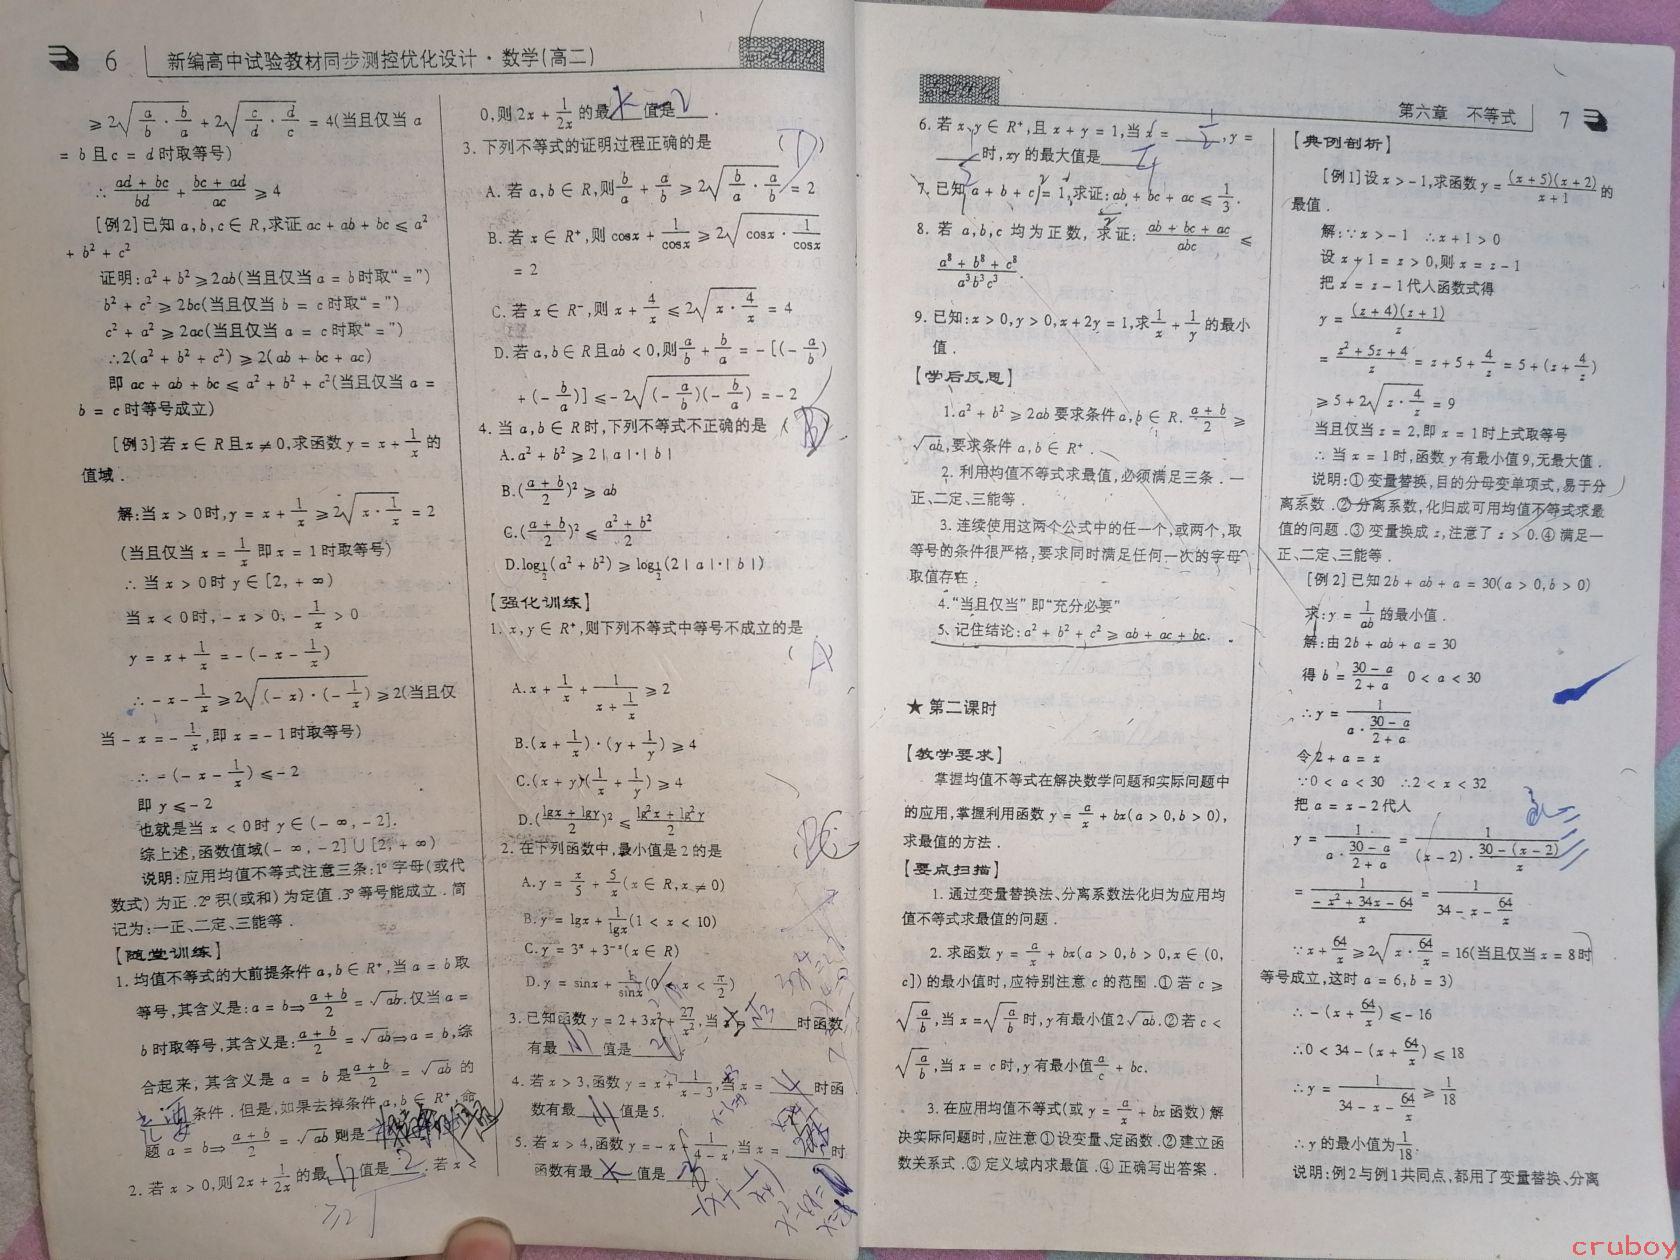 6 新编高中试验教材同步测控优化设计·数学(高二)
≥2√(a/b·b/a)+2√(c/d·d/c)=4(当且仅当a
=b且c=d时取等号)
∴(ad+bc)/bd+(bc+ad)/ac≥4
[例2]已知a,b,c∈R,求证ac+ab+bc≤a²
+b²+c²
证明:a²+b²≥2ab(当且仅当a=b时取“=”)
b²+c²≥2bc(当且仅当b=c时取“=”)
c²+a²≥2ac(当且仅当a=c时取“=”)
∴2(a²+b²+c²)≥2(ab+bc+ac)
即ac+ab+bc≤a²+b²+c²(当且仅当a=
b=c时等号成立)
[例3]若x∈R且x≠0,求函数y=x+1/x的
值域.
解:当x>0时,y=x+1/x≥2√(x·1/x)=2
(当且仅当x=1/x即x=1时取等号)
∴当x>0时y∈[2,+∞)
当x<0时,-x>0,-1/x>0
y=x+1/x=-(-x-1/x)
∴-x-1/x≥2√((-x)·(-1/x))≥2(当且仅
当-x=-1/x,即x=-1时取等号)
∴-(-x-1/x)≤-2
即y≤-2
也就是当x<0时y∈(-∞,-2].
综上述,函数值域(-∞,-2]∪[2,+∞)
说明:应用均值不等式注意三条:1°字母(或代
数式)为正.2°积(或和)为定值.3°等号能成立.简
记为:一正、二定、三能等.
【随堂训练】
1.均值不等式的大前提条件a,b∈R⁺,当a=b取
等号,其含义是:a=b⇒(a+b)/2=√ab.仅当a=
b时取等号,其含义是:(a+b)/2=√ab⇒a=b,综
合起来,其含义是a=b是(a+b)/2=√ab的
充要条件.但是,如果去掉条件a,b∈R⁺,命
题a=b⇒(a+b)/2=√ab则是
2.若x>0,则2x+1/2x的最小值是2.若x<
≥2
0,则2x+1/2x的最大值是-2.
3.下列不等式的证明过程正确的是(D)
A.若a,b∈R,则b/a+a/b≥2√(b/a·a/b)=2
B.若x∈R⁺,则cosx+1/cosx≥2√(cosx·1/cosx)
=2
C.若x∈R⁻,则x+4/x≤2√(x·4/x)=4
D.若a,b∈R且ab<0,则a/b+b/a=-[(-a/b)
+(-b/a)]≤-2√((-a/b)(-b/a))=-2
4.当a,b∈R时,下列不等式不正确的是(B)
A.a²+b²≥2|a|·|b|
B.((a+b)/2)²≥ab
C.((a+b)/2)²≤(a²+b²)/2
D.log½(a²+b²)≥log½(2|a|·|b|)
【强化训练】
1.x,y∈R⁺,则下列不等式中等号不成立的是
(A
A.x+1/x+1/(x+1/x)≥2
B.(x+1/x)·(y+1/y)≥4
C.(x+y)(1/x+1/y)≥4
D.((lgx+lgy)/2)²≤(lg²x+lg²y)/2
2.在下列函数中,最小值是2的是
A.y=x/5+5/x(x∈R,x≠0)
B.y=lgx+1/lgx(1<x<10)
C.y=3ˣ+3⁻ˣ(x∈R)
D.y=sinx+1/sinx(0<x<π/2)
3.已知函数y=2+3x²+27/x²,当x= 时函数
有最小值是
4.若x>3,函数y=x+1/(x-3),当x=4时函
数有最小值是5.
5.若x>4,函数y=-x+1/(4-x),当x= 时
函数有最大值是
第六章 不等式 7
6.若x,y∈R⁺,且x+y=1,当x=1/2,y=
1/2时,xy的最大值是1/4
7.已知a+b+c=1,求证:ab+bc+ac≤1/3.
8.若a,b,c均为正数,求证:(ab+bc+ac)/abc≤
(a⁸+b⁸+c⁸)/a³b³c³.
9.已知:x>0,y>0,x+2y=1,求1/x+1/y的最小
值.
【学后反思】
1.a²+b²≥2ab要求条件a,b∈R.(a+b)/2≥
√ab,要求条件a,b∈R⁺.
2.利用均值不等式求最值,必须满足三条.一
正、二定、三能等.
3.连续使用这两个公式中的任一个,或两个,取
等号的条件很严格,要求同时满足任何一次的字母
取值存在.
4.“当且仅当”即“充分必要”
5.记住结论:a²+b²+c²≥ab+ac+bc.
★第二课时
【教学要求】
掌握均值不等式在解决数学问题和实际问题中
的应用,掌握利用函数y=a/x+bx(a>0,b>0),
求最值的方法.
【要点扫描】
1.通过变量替换法、分离系数法化归为应用均
值不等式求最值的问题.
2.求函数y=a/x+bx(a>0,b>0,x∈(0,
c])的最小值时,应特别注意c的范围.①若c≥
√(a/b),当x=√(a/b)时,y有最小值2√ab.②若c<
√(a/b),当x=c时,y有最小值a/c+bc.
3.在应用均值不等式(或y=a/x+bx函数)解
决实际问题时,应注意①设变量、定函数.②建立函
数关系式.③定义域内求最值.④正确写出答案.
【典例剖析】
[例1]设x>-1,求函数y=(x+5)(x+2)/(x+1)的
最值.
解:∵x>-1 ∴x+1>0
设x+1=z>0,则x=z-1
把x=z-1代人函数式得
y=(z+4)(z+1)/z
=(z²+5z+4)/z=z+5+4/z=5+(z+4/z)
≥5+2√(z·4/z)=9
当且仅当z=2,即x=1时上式取等号
∴当x=1时,函数y有最小值9,无最大值.
说明:①变量替换,目的分母变单项式,易于分
离系数.②分离系数,化归成可用均值不等式求最
值的问题.③变量换成z,注意了z>0.④满足一
正、二定、三能等.
[例2]已知2b+ab+a=30(a>0,b>0)
求:y=1/ab的最小值.
解:由2b+ab+a=30
得b=(30-a)/(2+a) 0<a<30
∴y=1/(a·(30-a)/(2+a))
令2+a=x
∵0<a<30 ∴2<x<32
把a=x-2代人
y=1/(a·(30-a)/(2+a))=1/((x-2)·(30-(x-2))/x)
=1/((-x²+34x-64)/x)=1/(34-x-64/x)
∵x+64/x≥2√(x·64/x)=16(当且仅当x=8时
等号成立,这时a=6,b=3)
∴-(x+64/x)≤-16
∴0<34-(x+64/x)≤18
∴y=1/(34-x-64/x)≥1/18
∴y的最小值为1/18.
说明:例2与例1共同点,都用了变量替换、分离
cruboy